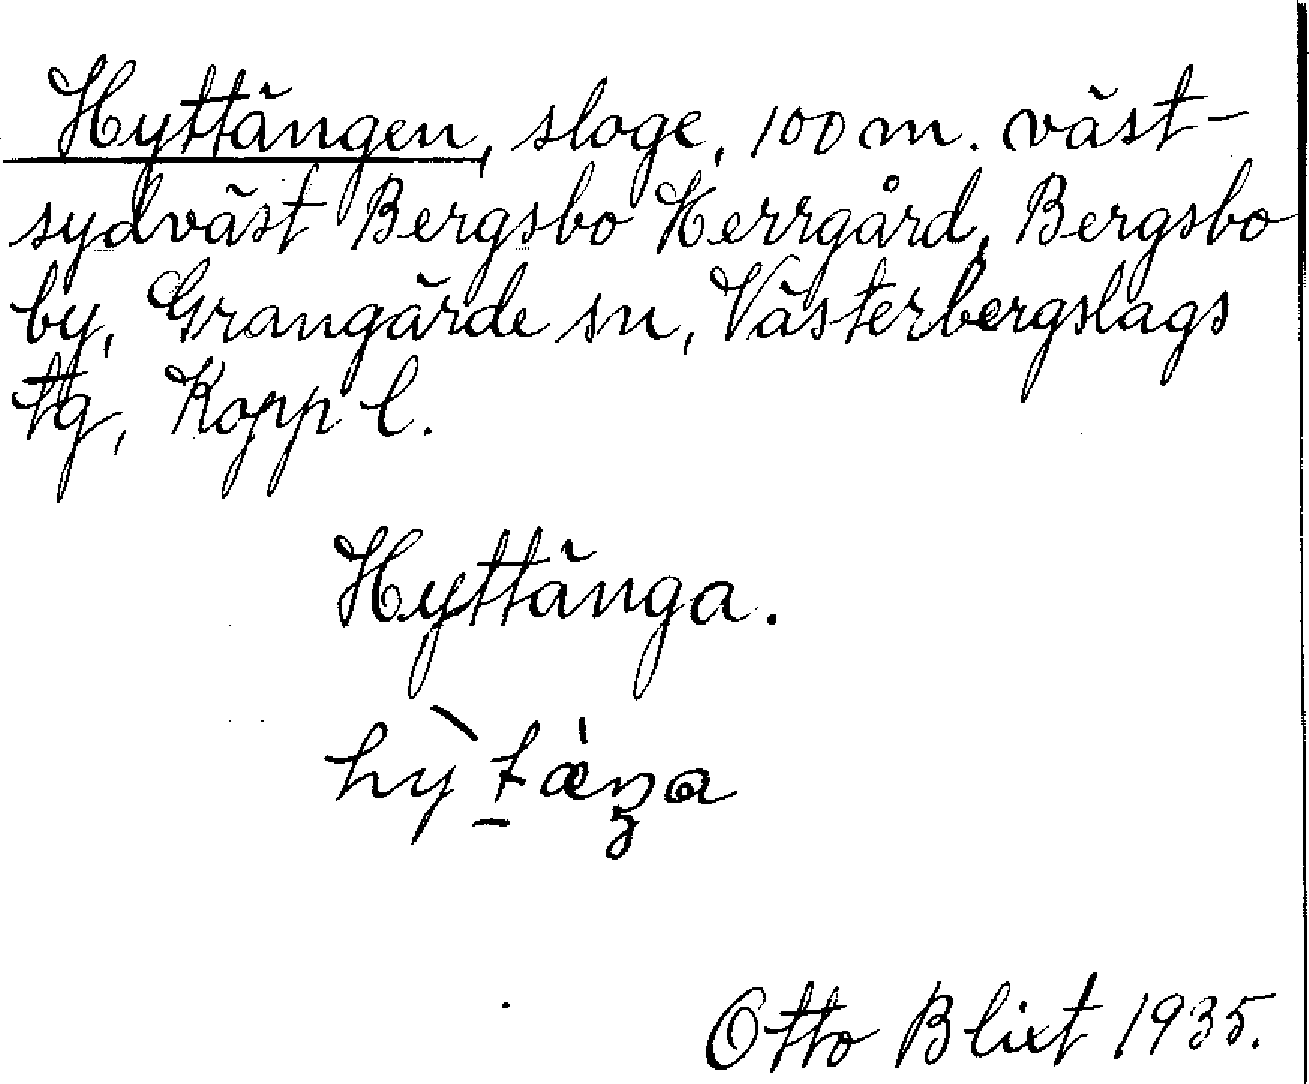 Hyttängen, sloge, 100 m. väst-
sydväst Bergsbo Herrgård, Bergsbo
by, Grangärde sn, Västerbergslags
tg, Kopp l.
Hyttänga.
hỳtæŋa
Otto Blixt 1935.